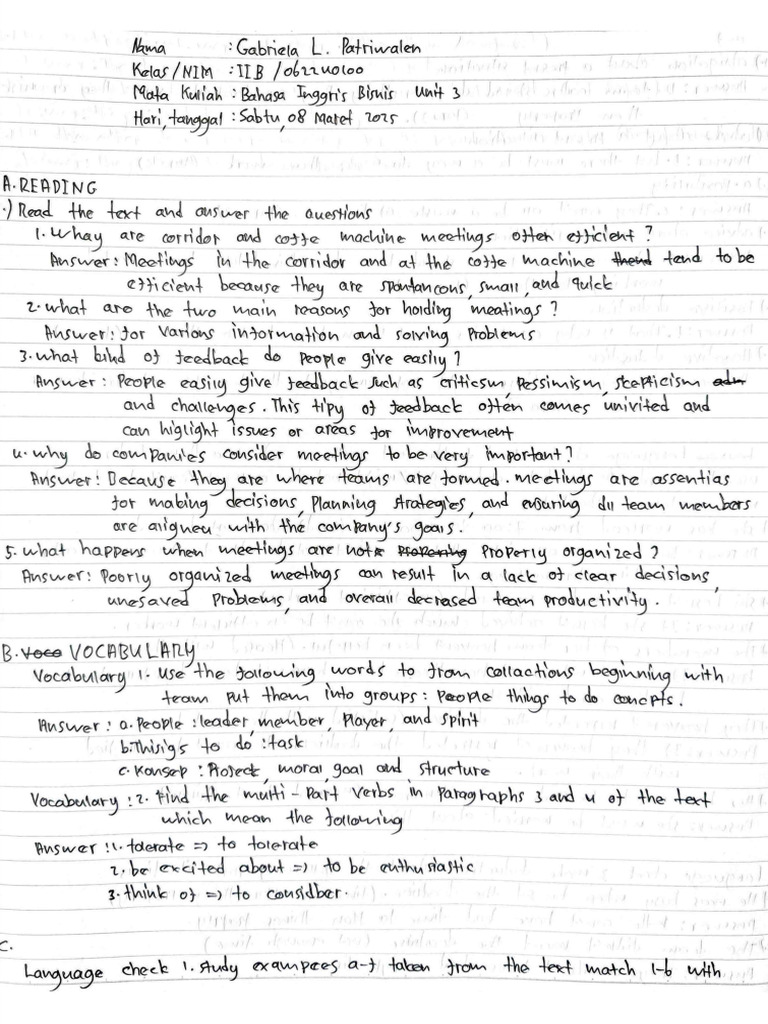 Nama : Gabriela L. Patriwalen
Kelas/NIM : IIB /062240100
Mata Kuliah : Bahasa Inggris Bisnis Unit 3
Hari, tanggal : Sabtu, 08 Maret 2025
A. READING
.) Read the text and answer the questions
1. Whay are corridor and coffe machine meetings often efficient ?
Answer : Meetings in the corridor and at the coffe machine thend tend to be
efficient because they are spontancons, small, and quick
2. what are the two main reasons for holding meatings ?
Answer : for various information and solving problems
3. what bind of feedback do people give easliy ?
Answer : People easily give feedback such as criticsm, pessimism, scepticism
and challenges. This tipy of feedback often comes univited and
can higlight issues or areas for improvement
4. why do companies consider meetings to be very important ?
Answer : Because they are where teams are formed. meetings are assentias
for making decisions, planning strategies, and ensuring all team members
are aligneu with the company's goals.
5. what happens when meetings are not propering properly organized ?
Answer : Poorly organized meetings can result in a lack of clear decisions,
unesaved problems, and overall decreased team productivity.
B. Voco VOCABULARY
Vocabulary 1. use the following words to from collactions beginning with
team put them into groups : people things to do concpts.
Answer : a. people : leader, member, player, and spirit
b. Thisigs to do : task
c. Konsep : Project, moral, goal and structure
Vocabulary : 2. find the multi-part verbs in paragraphs 3 and 4 of the text
which mean the following
Answer : 1. tolerate => to tolerate
2. be excited about => to be enthusiastic
3. think of => to considber.
C.
Language check 1. study exampees a-f taken from the text match 1-6 with